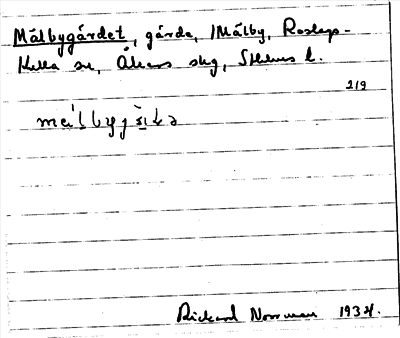 Målbygärdet, gärde, Målby, Roslags-
Kulla sn, Åkers skg, Sthlms l.
219
Rickard Norrman 1934.